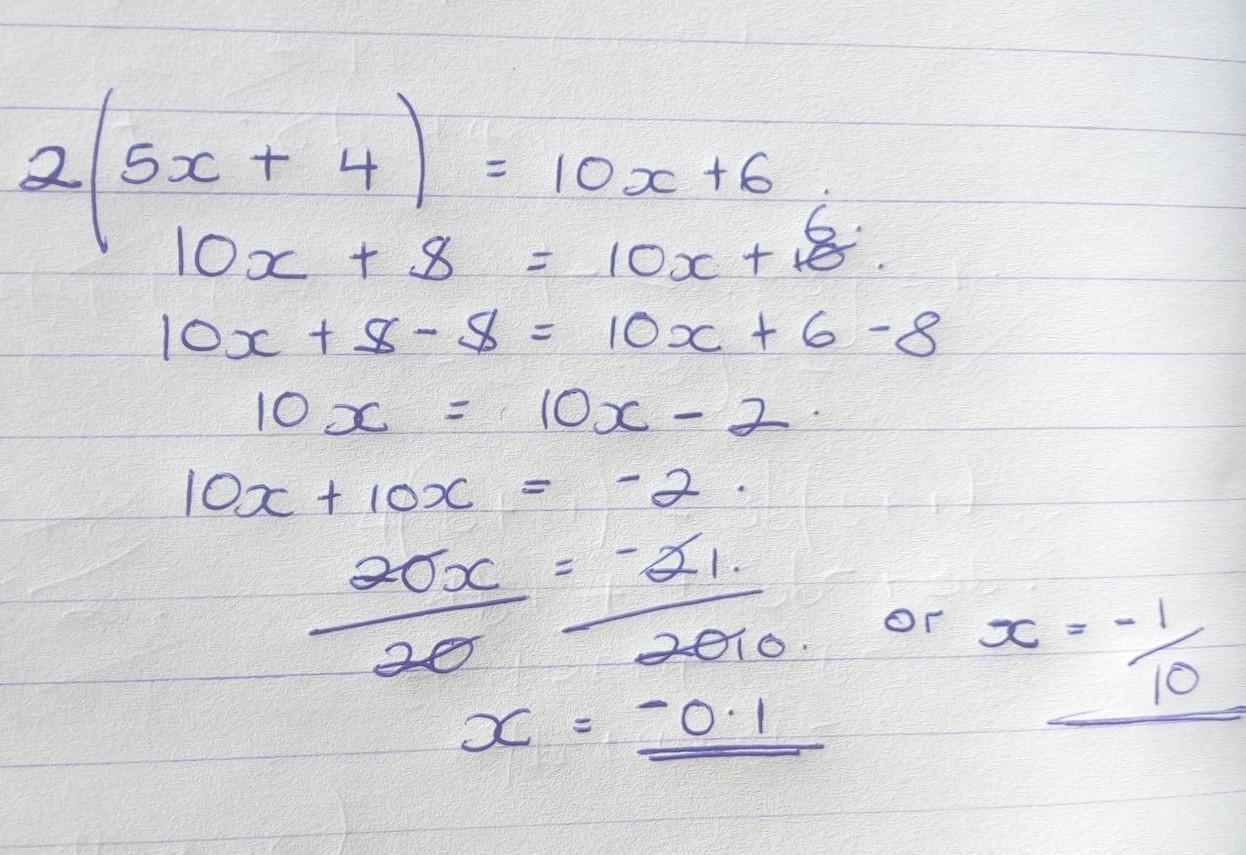 2(5x + 4) = 10x + 6.
10x + 8 = 10x + 6.
10x + 8 - 8 = 10x + 6 - 8
10x = 10x - 2.
10x + 10x = -2.
20x/20 = -2 1./20 10. or x = -1/10
x = -0.1